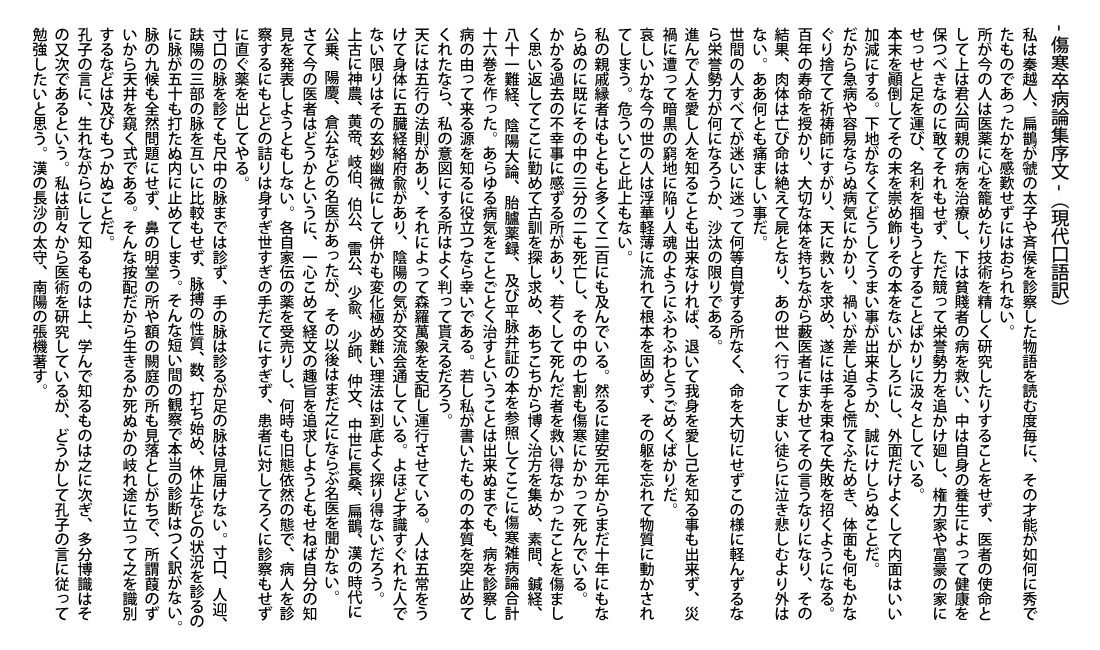 - 傷寒卒病論集序文 - （現代口語訳）
私は秦越人、扁鵲が虢の太子や斉侯を診察した物語を読む度毎に、その才能が如何に秀で
たものであったかを感歎せずにはおられない。
所が今の人は医薬に心を籠めたり技術を精しく研究したりすることをせず、医者の使命と
して上は君公両親の病を治療し、下は貧賤者の病を救い、中は自身の養生によって健康を
保つべきなのに敢てそれもせず、ただ競って栄誉勢力を追かけ廻し、権力家や富豪の家に
せっせと足を運び、名利を掴もうとすることばかりに汲々としている。
本末を顚倒してその末を崇め飾りその本をないがしろにし、外面だけよくして内面はいい
加減にする。下地がなくてどうしてうまい事が出来ようか、誠にけしらぬことだ。
だから急病や容易ならぬ病気にかかり、禍いが差し迫ると慌てふためき、体面も何もかな
ぐり捨てて祈祷師にすがり、天に救いを求め、遂には手を束ねて失敗を招くようになる。
百年の寿命を授かり、大切な体を持ちながら藪医者にまかせてその言うなりになり、その
結果、肉体は亡び命は絶えて屍となり、あの世へ行ってしまい徒らに泣き悲しむより外は
ない。ああ何とも痛ましい事だ。
世間の人すべてが迷いに迷って何等自覚する所なく、命を大切にせずこの様に軽んずるな
ら栄誉勢力が何になろうか、沙汰の限りである。
進んで人を愛し人を知ることも出来なければ、退いて我身を愛し己を知る事も出来ず、災
禍に遭って暗黒の窮地に陥り人魂のようにふわふわとうごめくばかりだ。
哀しいかな今の世の人は浮華軽薄に流れて根本を固めず、その躯を忘れて物質に動かされ
てしまう。危ういこと此上もない。
私の親戚縁者はもともと多くて二百にも及んでいる。然るに建安元年からまだ十年にもな
らぬのに既にその中の三分の二も死亡し、その中の七割も傷寒にかかって死んでいる。
かかる過去の不幸事に感ずる所があり、若くして死んだ者を救い得なかったことを傷まし
く思い返してここに勤めて古訓を探し求め、あちこちから博く治方を集め、素問、鍼経、
八十一難経、陰陽大論、胎臚薬録、及び平脉弁証の本を参照してここに傷寒雑病論合計
十六巻を作った。あらゆる病気をことごとく治すということは出来ぬまでも、病を診察し
病の由って来る源を知るに役立つなら幸いである。若し私が書いたものの本質を突止めて
くれたなら、私の意図にする所はよく判って貰えるだろう。
天には五行の法則があり、それによって森羅萬象を支配し運行させている。人は五常をう
けて身体に五臓経絡府兪があり、陰陽の気が交流会通している。よほど才識すぐれた人で
ない限りはその玄妙幽微にして併かも変化極め難い理法は到底よく探り得ないだろう。
上古に神農、黄帝、岐伯、伯公、雷公、少兪、少師、仲文、中世に長桑、扁鵲、漢の時代に
公乗、陽慶、倉公などの名医があったが、その以後はまだ之にならぶ名医を聞かない。
さて今の医者はどうかというに、一心こめて経文の趣旨を追求しようともせねば自分の知
見を発表しようともしない。各自家伝の薬を受売りし、何時も旧態依然の態で、病人を診
察するにもとどの詰りは身すぎ世すぎの手だてにすぎず、患者に対してろくに診察もせず
に直ぐ薬を出してやる。
寸口の脉を診ても尺中の脉までは診ず、手の脉は診るが足の脉は見届けない。寸口、人迎、
趺陽の三部の脉を互いに比較もせず、脉搏の性質、数、打ち始め、休止などの状況を診るの
に脉が五十も打たぬ内に止めてしまう。そんな短い間の観察で本当の診断はつく訳がない。
脉の九候も全然問題にせず、鼻の明堂の所や額の闕庭の所も見落としがちで、所謂葭のず
いから天井を窺く式である。そんな按配だから生きるか死ぬかの岐れ途に立って之を識別
するなどは及びもつかぬことだ。
孔子の言に、生れながらにして知るものは上、学んで知るものは之に次ぎ、多分博識はそ
の又次であるという。私は前々から医術を研究しているが、どうかして孔子の言に従って
勉強したいと思う。漢の長沙の太守、南陽の張機著す。